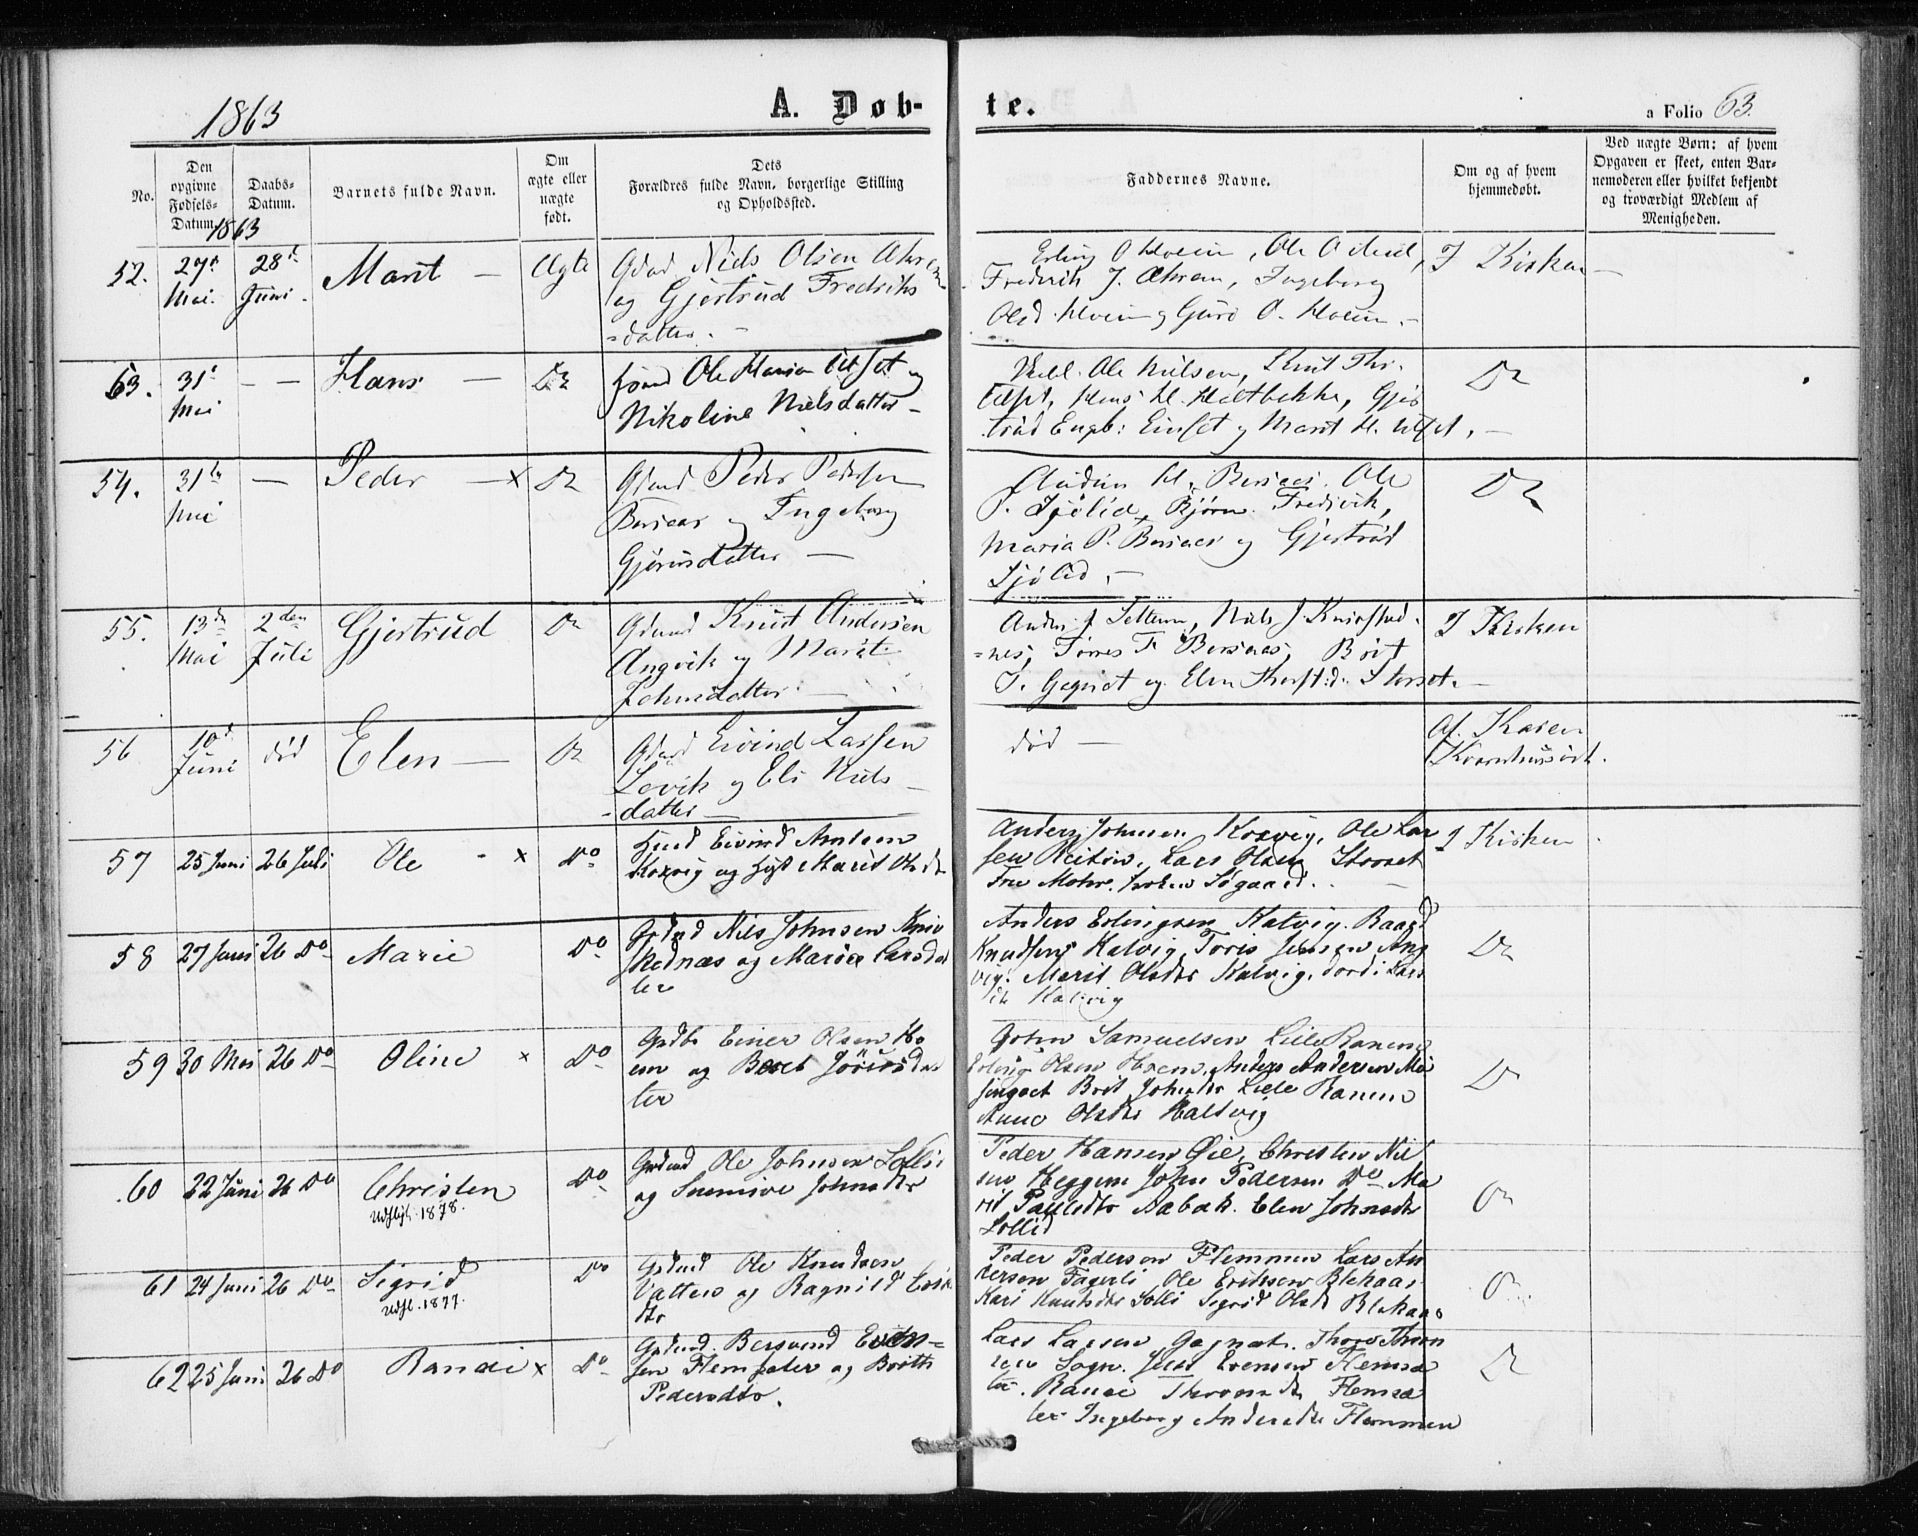 1863
A. Døb-
te.
a Folio 63.
No.
Den opgivne Fødsels-Datum.
Daabs-Datum.
Barnets fulde Navn.
Om ægte eller uægte født.
Dets Forældres fulde Navn, borgerlige Stilling og Opholdssted.
Faddernes Navne.
Om og af hvem hjemmedøbt.
Ved uægte Børn: af hvem Opgaven er skeet, enten Barnemoderen eller hvilket bekjendt og troværdigt Medlem af Menigheden.
1863
52. 27 Mai. 28 Juni. Marit — Ægte
Gdmd Niels Olsen
og Gjertrud Fredriks
=datter. —
Erling O Hoem, Ole O
Frederik J. Ingeborg
Olsd. Hoem og Guro O. Hoem. —
I Kirken —
53. 31 Mai — — Hans — Do
Ole Utset og
Nikoline Nielsdatter —
Ole Nielsen, Knut
Utset, Gjer
trud Engb: Einset og Marit H. Utset. —
Do
54. 31 Mai — Peder — x Do
Gdmd Peder Pedersen
Bersaas og Ingeborg
datter —
H. Bersaas. Ole
P. Sjølid, Bjørn Fredrik,
Maria P. Bersaas og Gjertrud
Sjølid, —
Do
55. 13 Mai 2den Juli Gjertrud Do
Gdmd Knut Andersen
Angvik og Marit
Johnsdatter. —
Anders J Settem, Niels J.
=nes, Torres F Bersaas, Brit
J. Gagnat og Elen Storset. —
I Kirken
56 10 Juni død Elen — Do
Gdmd Eivind Larsen
Løvik og Eli Niels
=datter —
død —
af Karen
57 25 Juni 26 Juli Ole x Do
Eivind Amdsen
Koxvig og Marit
Anders Johnsen Koxvig, Ole Lar
sen Lars Olsen Storset
Fru Mohr. Søgaard.
I Kirken
58 27 Juni 26 Do Marie Do
Gdmd Nils Johnsen
og Maria Larsdat
ter
Anders Erlingsen Kalvig. Baard
Knudsen Kalvig, Toris Jensen Ang
vig. Marit Olsdtr Kalvig, Dordi Lars
dtr Kalvig
Do
59 30 Mai 26 Do Oline x Do
Einer Olsen Ho
em og Beret
ter
John Samuelsen Lille Ranem
Erling Olsen Hoem, Anders Andersen Mei
singset Brit Johnsdtr Lille Ranem
Anne Olsdtr Kalvig
Do
60 22 Juni 26 Do Christen
Udfløjt. 1878.
Do
Gdmd Ole Johnsen Sollid
og Johnsdtr
Peder Hansen Øie, Christen Niel
sen Heggem John Pedersen Do Ma
rit Paulsdtr Aabak. Elen Johnsdtr
Sollid
Do
61 24 Juni 26 Do Sigrid
Udfl. 1877.
Do
Gdmd Ole Knudsen
Vatten og Ragnild
dtr
Peder Pedersen Flemmen Lars An
dersen Fagerli Ole Eriksen Blekaas
Kari Knutsdtr Solli Sigrid Olsdtr Blekaas
Do
62 25 Juni 26 Do Randi x Do
Gdmd. Bersvend Even=
sen Flemsæter og Brith
Pedersdtr.
Lars Larsen Gagnat. Thore Thom
sen Sogn. Evensen Flemsæ
ter. Flemsæ
ter. Ingeborg Andersdtr Flemmen
Do